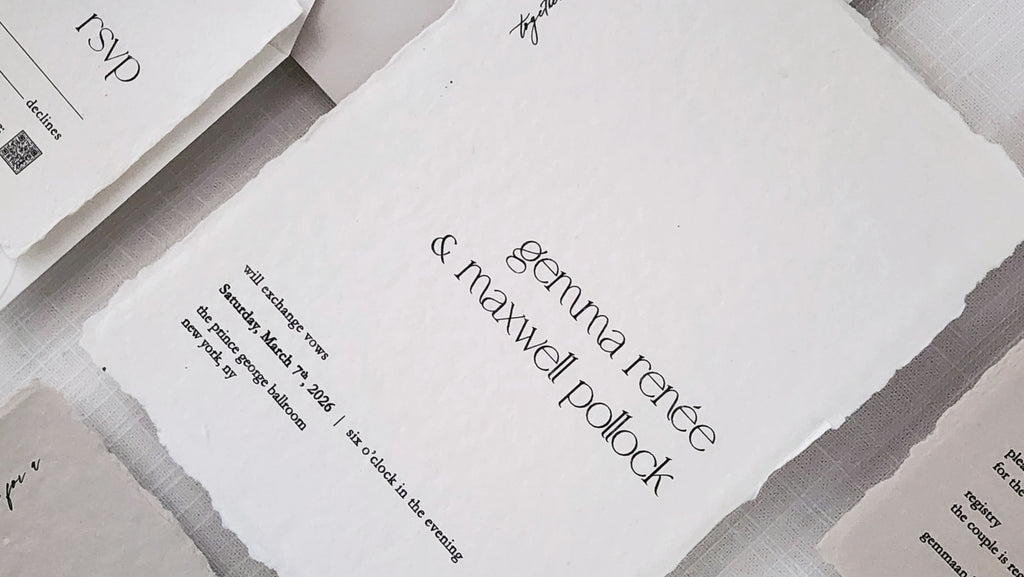 rsvp
declines
gemma renée
& maxwell pollock
will exchange vows
Saturday, March 7th, 2026 | six o'clock in the evening
the prince george ballroom
new york, ny
for a
for the
registry
the couple is